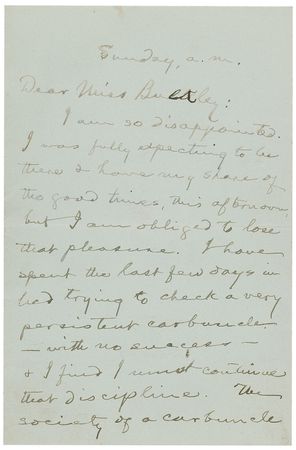 Sunday, a.m.
Dear Miss Bulkley:
I am so disappointed.
I was fully expecting to be
there & have my share of
the good things, this afternoon,
but I am obliged to lose
that pleasure. I have
spent the last few days in
bed trying to check a very
persistent carbuncle
— with no success —
& I find I must continue
that discipline. The
society of a carbuncle